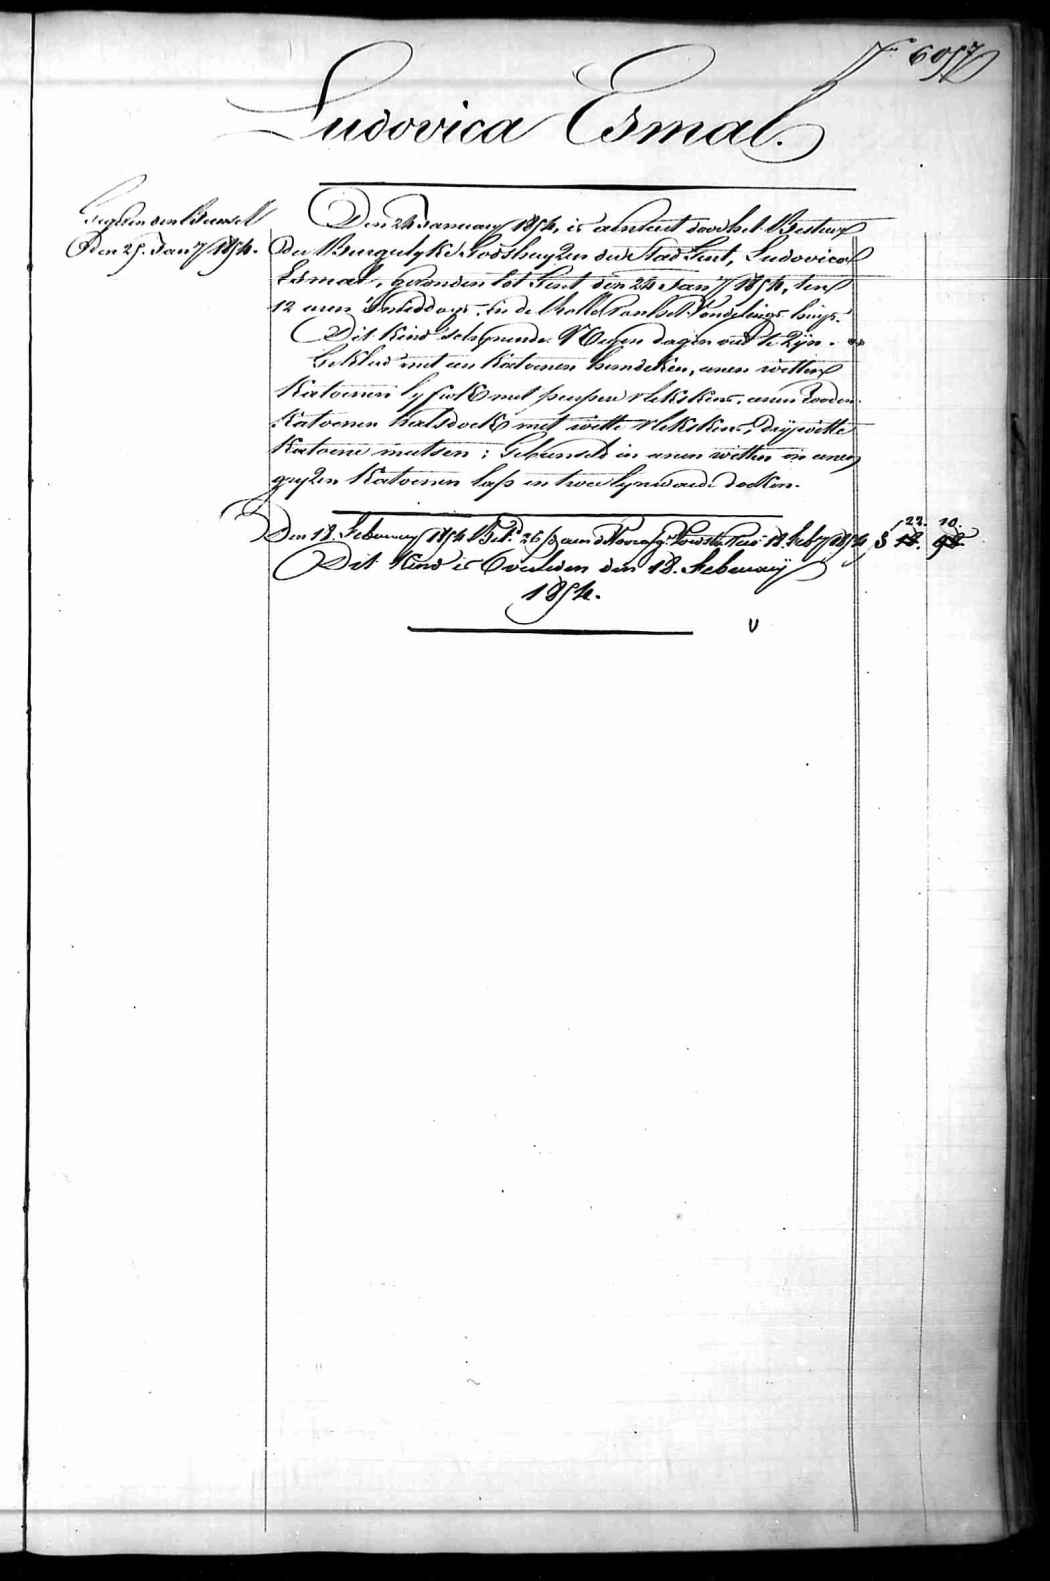 Nr 6957
Ludovica Esmal.
Den 25. Jany 1854.
Den 24 January 1854, is alment door het Bestuer
der Burgerlyke Godshuyzen der Stad Gent, Ludovica
Esmal, gevonden tot Gent den 24 Jany 1854, ten
12 uren 's middags, in de Rolle van het Vondelings huys.
Dit kind schynende Negen dagen oud te zyn.
Gekleed met een katoenen hemdeken, eenen witten
katoenen lyfrok met peuper vlekskens, eenen Rooden
katoenen halsdoek met witte vlekskens, dry witte
katoene mutsen; Gebunseld in eenen witten en eenen
gryzen katoenen lap en twee lynwaede doeken.
Den 18 February 1854 Bet. 26 aen de 18 Feby 1854 3 18. 98
22. 10.
Dit Kind is Overleden den 18. February
1854.